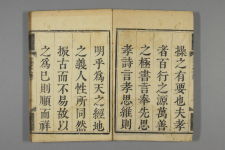 操之有要也夫孝
者百行之源萬善
之極書言奉先思
孝詩言孝思維則
明乎爲天之經地
之義人性所同然
振古而不易故以
之爲己則順而祥